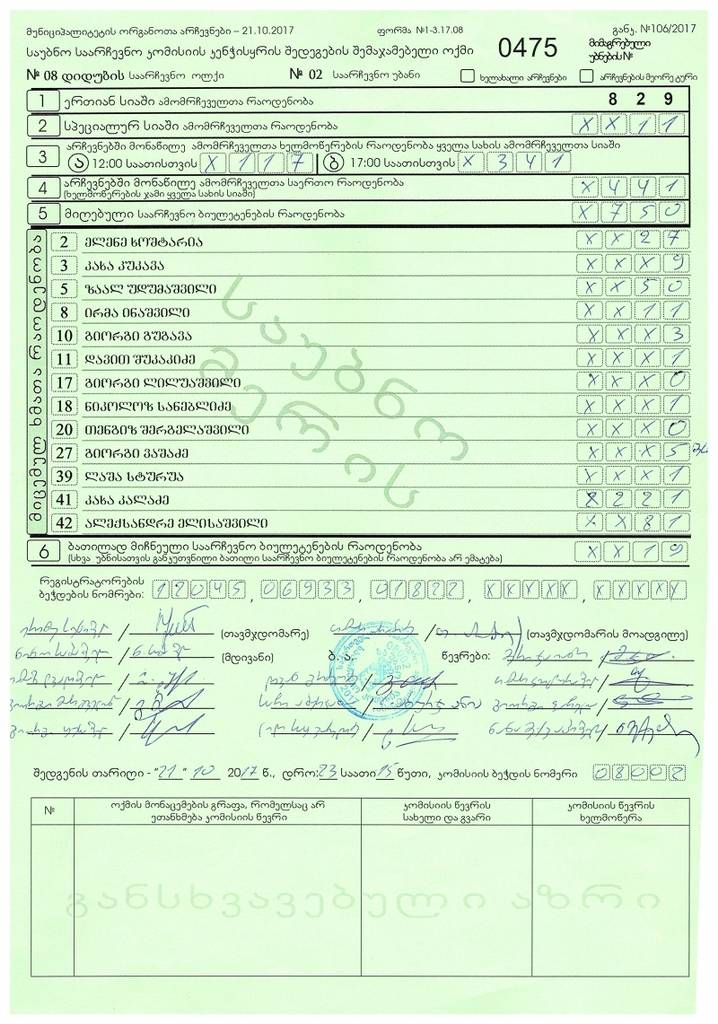 მუნიციპალიტეტის ორგანოთა არჩევნები – 21.10.2017 ფორმა №1-3.17.08 განკ. №106/2017
საუბნო საარჩევნო კომისიის კენჭისყრის შედეგების შემაჯამებელი ოქმი 0475 მიმაგრებული უბნების №
№ 08 დიდუბის საარჩევნო ოლქი № 02 საარჩევნო უბანი ხელახალი არჩევნები არჩევნების მეორე ტური
1 ერთიან სიაში ამომრჩეველთა რაოდენობა 8 2 9
2 სპეციალურ სიაში ამომრჩეველთა რაოდენობა X X 1 1
3 არჩევნებში მონაწილე ამომრჩეველთა ხელმოწერების რაოდენობა ყველა სახის ამომრჩეველთა სიაში
ა 12:00 საათისთვის X 1 1 7 ბ 17:00 საათისთვის X 3 4 1
4 არჩევნებში მონაწილე ამომრჩეველთა საერთო რაოდენობა X 4 4 1
(ხელმოწერების ჯამი ყველა სახის სიაში)
5 მიღებული საარჩევნო ბიულეტენების რაოდენობა X 7 5 0
მიცემულ ხმათა რაოდენობა
2 ელენე ხოშტარია X X 2 7
3 კახა კუკავა X X X 9
5 ზაალ უდუმაშვილი X X 5 0
8 ირმა ინაშვილი X X 1 1
10 გიორგი გუგავა X X X 3
11 დავით შუკაკიძე X X X 1
17 გიორგი ლილუაშვილი X X X 0
18 ნიკოლოზ სანებლიძე X X X 1
20 თენგიზ შერგელაშვილი X X X 0
27 გიორგი ვაშაძე X X X 5
39 ლაშა სტურუა X X X 1
41 კახა კალაძე X 2 2 1
42 ალექსანდრე ელისაშვილი X X 8 1
საუბნო
მერის
6 ბათილად მიჩნეული საარჩევნო ბიულეტენების რაოდენობა X X 1 9
(სხვა უბნისათვის განკუთვნილი ბათილი საარჩევნო ბიულეტენების რაოდენობა არ ემატება)
რეგისტრატორების
ბეჭდების ნომრები: 12045, 06933, 01822, XXXXX, XXXXX
(თავმჯდომარე) (თავმჯდომარის მოადგილე)
(მდივანი) ბ. ა. წევრები:
შედგენის თარიღი - "21" 10 2017 წ., დრო: 23 საათი 15 წუთი, კომისიის ბეჭდის ნომერი 08002
№ ოქმის მონაცემების გრაფა, რომელსაც არ ეთანხმება კომისიის წევრი კომისიის წევრის სახელი და გვარი კომისიის წევრის ხელმოწერა
განსხვავებული აზრი